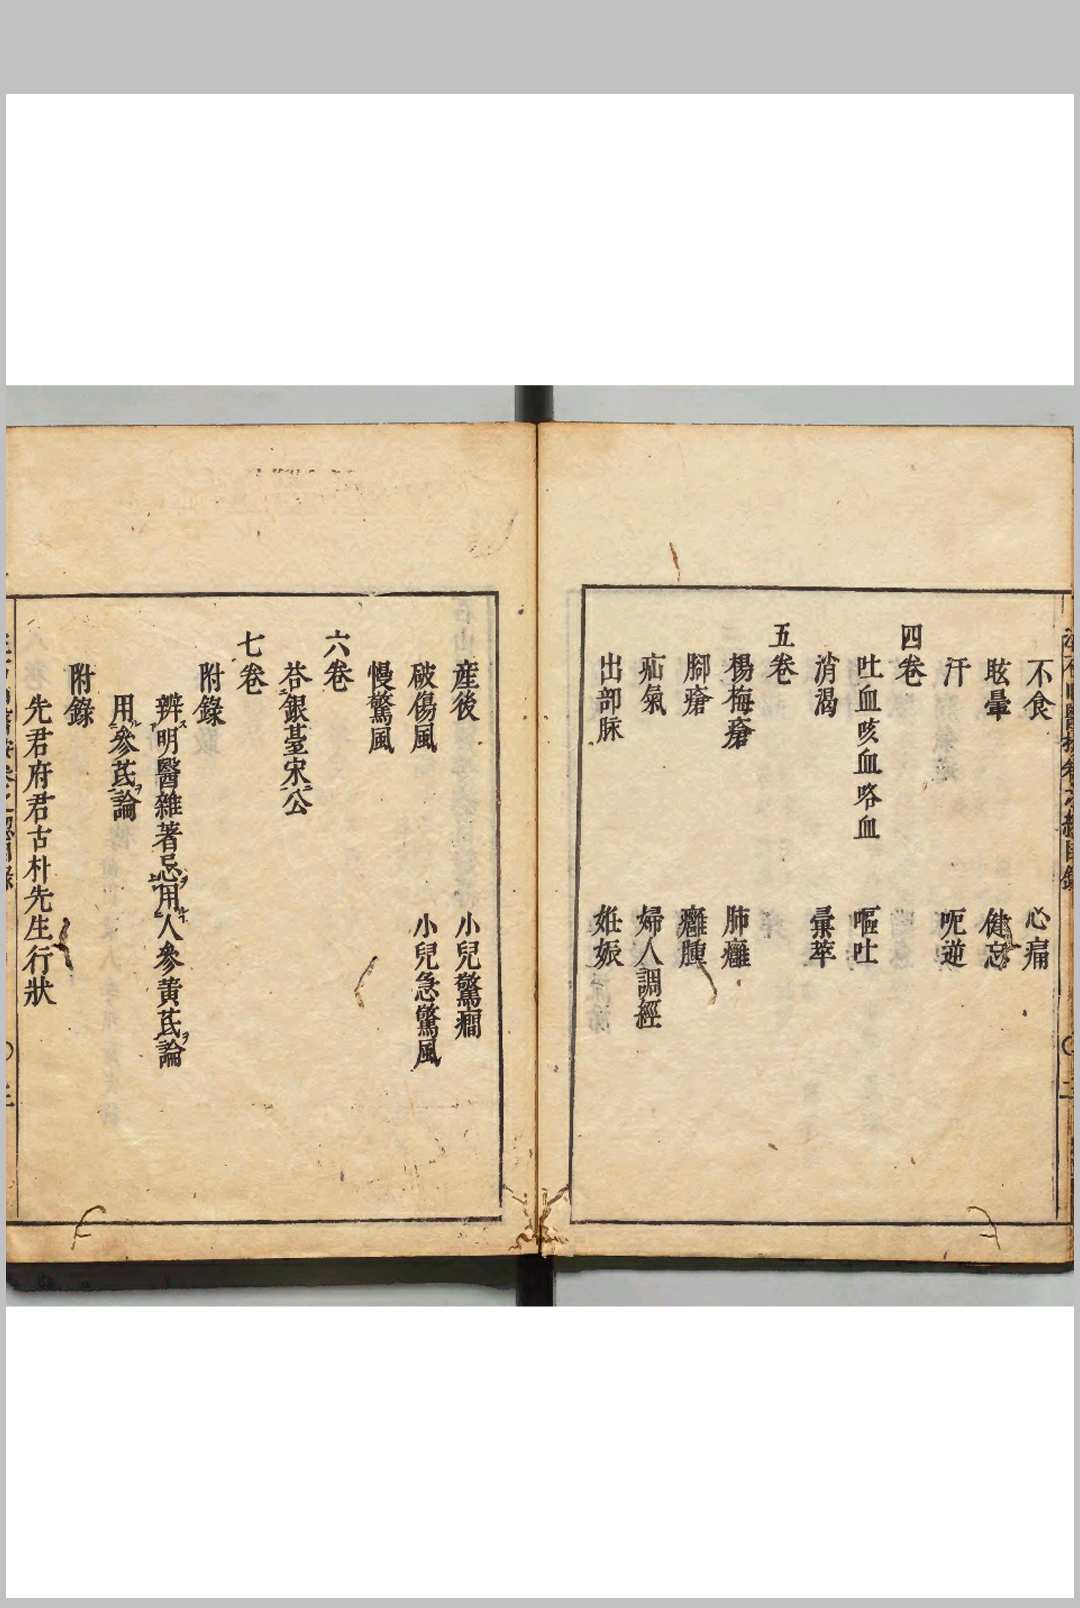 不食　心痛
眩暈　健忘
汗　呃逆
四卷
吐血咳血咯血　嘔吐
消渴　彙萃
五卷
楊梅瘡　肺癰
腳瘡　癰腫
疝氣　婦人調經
出部脉　姙娠
産後　小兒驚癇
破傷風　小兒急驚風
慢驚風
六卷
荅銀臺宋公
七卷
附錄
辨明醫雜著忌用人參黄茋論
用參茋論
附錄
先君府君古朴先生行狀